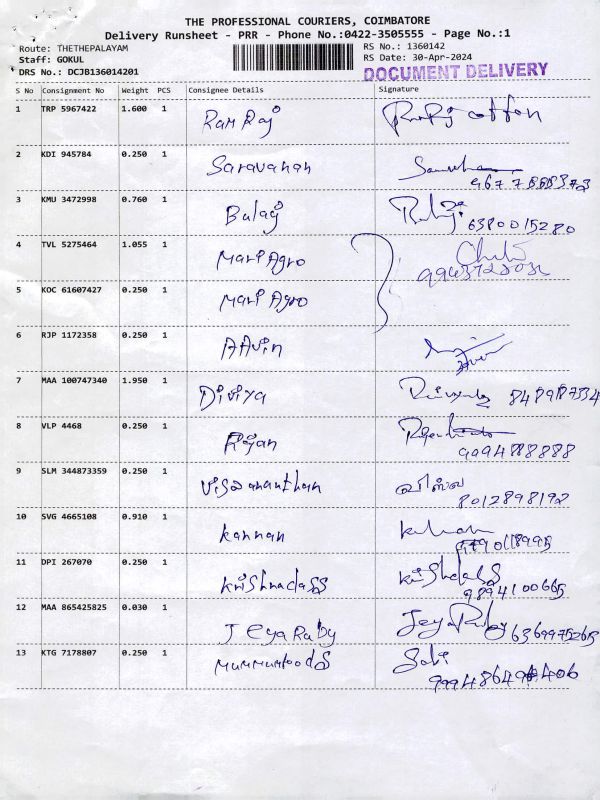 THE PROFESSIONAL COURIERS, COIMBATORE
Delivery Runsheet - PRR - Phone No.:0422-3505555 - Page No.:1
Route: THETHEPALAYAM RS No.: 1360142
Staff: GOKUL RS Date: 30-Apr-2024
DRS No.: DCJB136014201 DOCUMENT DELIVERY
S No Consignment No Weight PCS Consignee Details Signature
1 TRP 5967422 1.600 1 Ram Raj cotton
2 KDI 945784 0.250 1 Saravanan
3 KMU 3472998 0.760 1 Balaji
6380015280
4 TVL 5275464 1.055 1 Mari Agro
5 KOC 61607427 0.250 1 Mari Agro
6 RJP 1172358 0.250 1 AAvin
7 MAA 100747340 1.950 1 Diviya
8 VLP 4468 0.250 1 Rajan
9994888888
9 SLM 344873359 0.250 1 Viswananthan
8012898192
10 SVG 4665108 0.910 1 kannan
11 DPI 267070 0.250 1 krishnadass
9894100665
12 MAA 865425825 0.030 1 Jeya Ruby Jeya Ruby 6369975265
13 KTG 7178807 0.250 1 Sabi